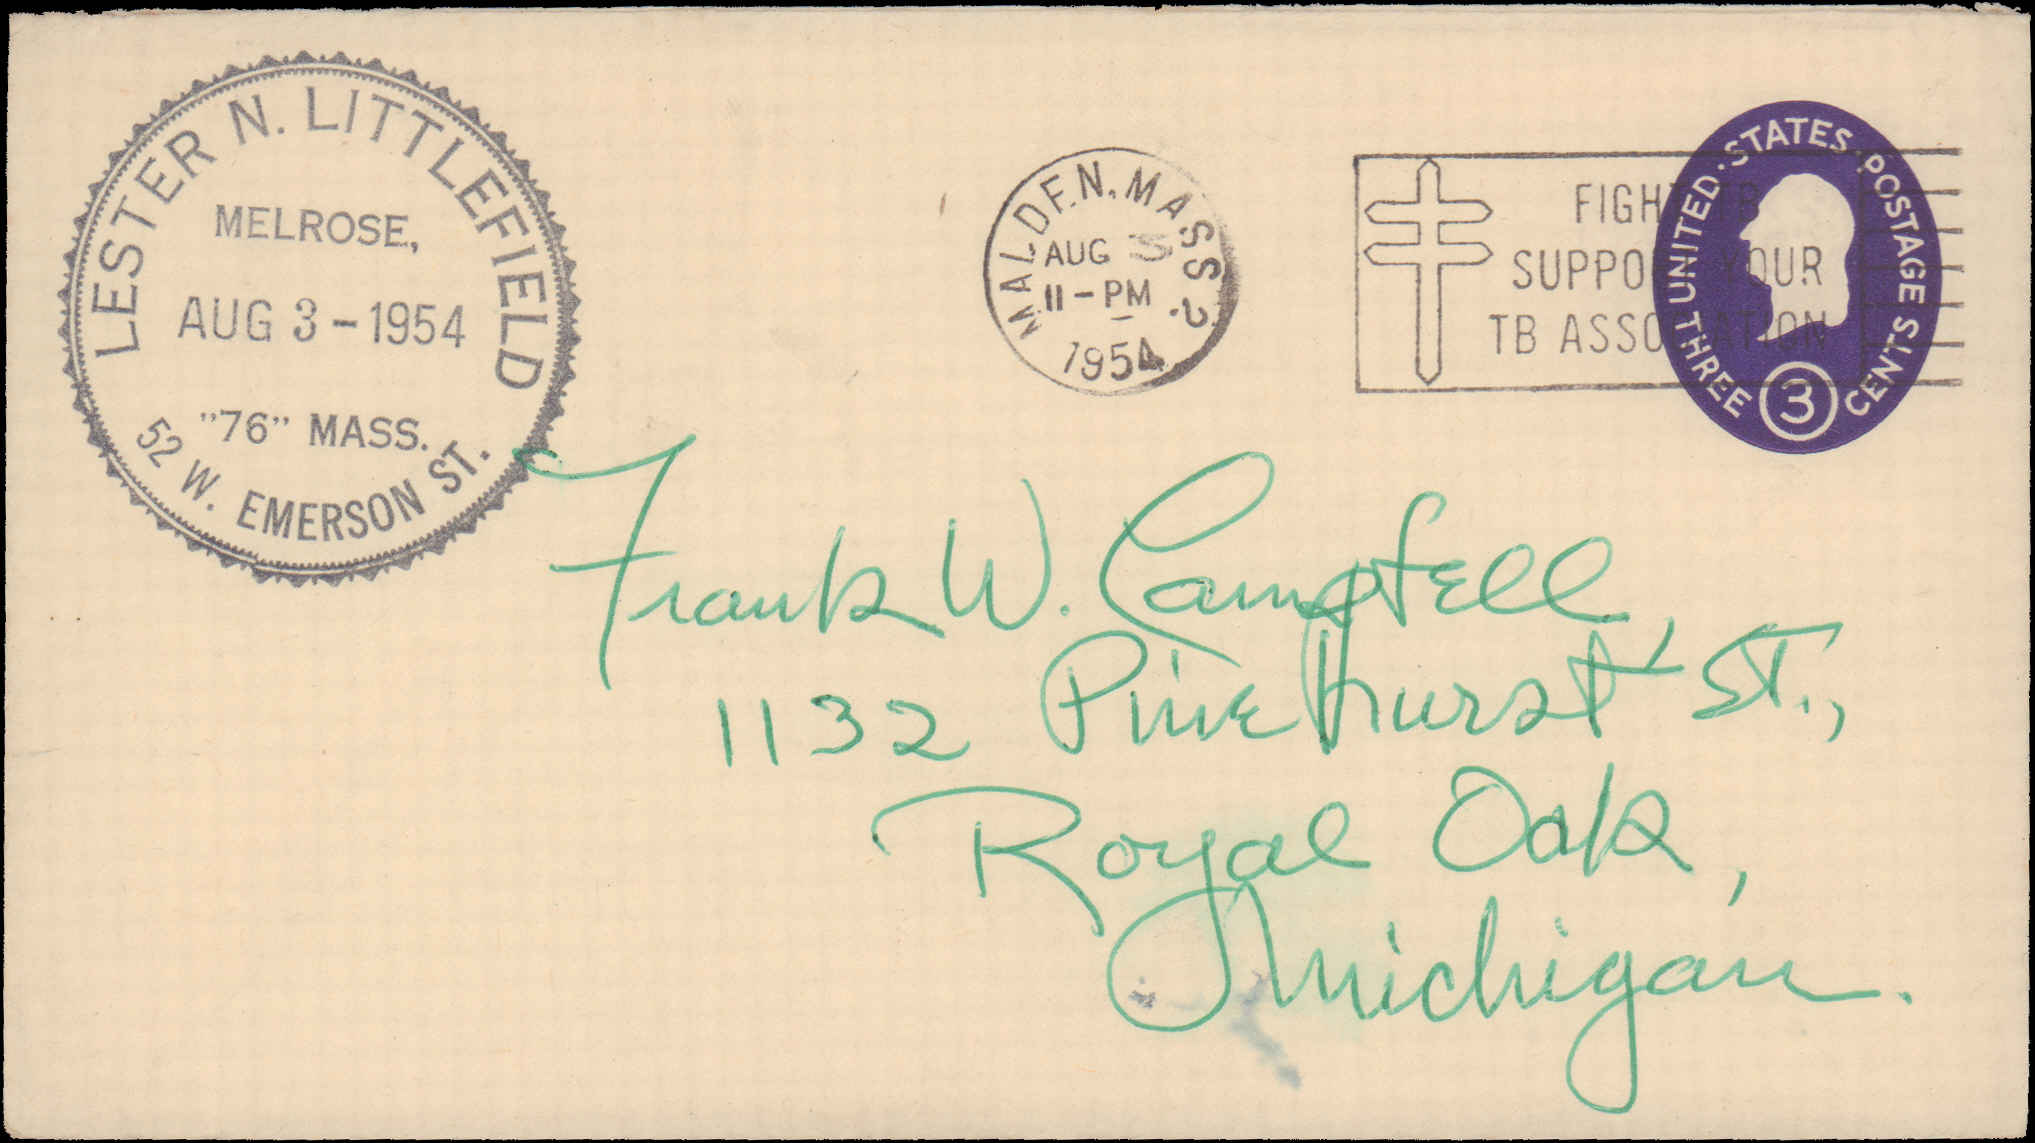 LESTER N. LITTLEFIELD
MELROSE,
AUG 3 - 1954
"76" MASS.
52 W. EMERSON ST.
MALDEN, MASS 2.
AUG 3
11 - PM
1954
FIGHT TB
SUPPORT YOUR
TB ASSOCIATION
UNITED · STATES · POSTAGE
THREE 3 CENTS
Frank W. Campbell,
1132 Pinehurst St.,
Royal Oak,
Michigan.